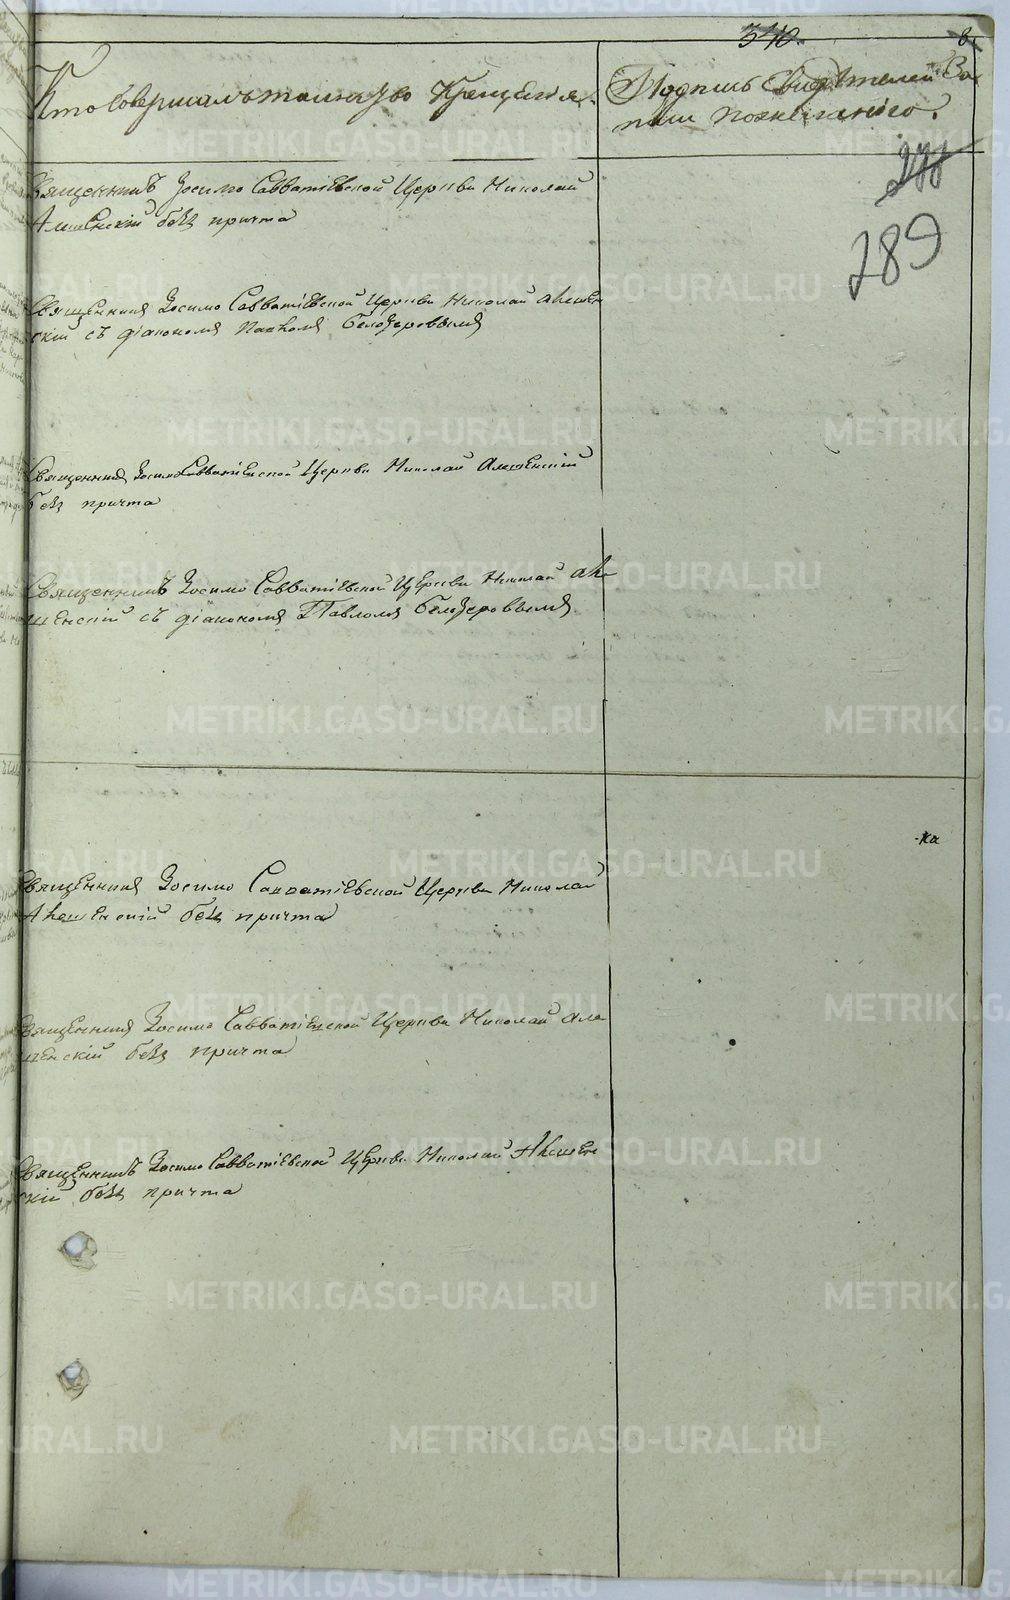 340.
8
Кто Совершалъ таинство Крещенія.
Подпись Свидѣтелей За
писи по желанію.
277
289
Священникъ Зосимо Савватіевской Церкви Николай
Алшенскій безъ причта
Священникъ Зосимо Савватіевской Церкви Николай Алшен
скій съ діакономъ Павломъ Белозеровымъ
Священникъ Зосимо Савватіевской Церкви Николай Алшенскій
безъ причта
Священникъ Зосимо Савватіевской Церкви Николай Ал
шенскій съ діакономъ Павломъ Белозеровымъ
ка
Священникъ Зосимо Савватіевской Церкви Николай
Алшенскій безъ причта
Священникъ Зосимо Савватіевской Церкви Николай Ал
шенскій безъ причта
Священникъ Зосимо Савватіевской Церкви Николай Алшен
скій безъ причта
METRIKI.GASO-URAL.RU